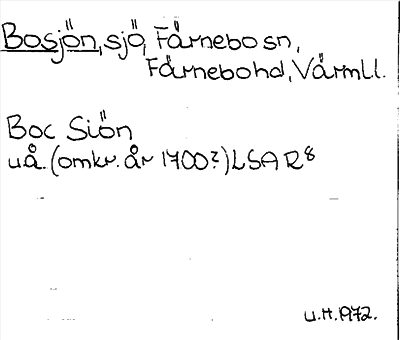 Bosjön, sjö, Färnebo sn,
Färnebo hd, Värml l.
Boc Siön
u.å. (omkr. år 1700?) LSA R8
U.H. 1972.